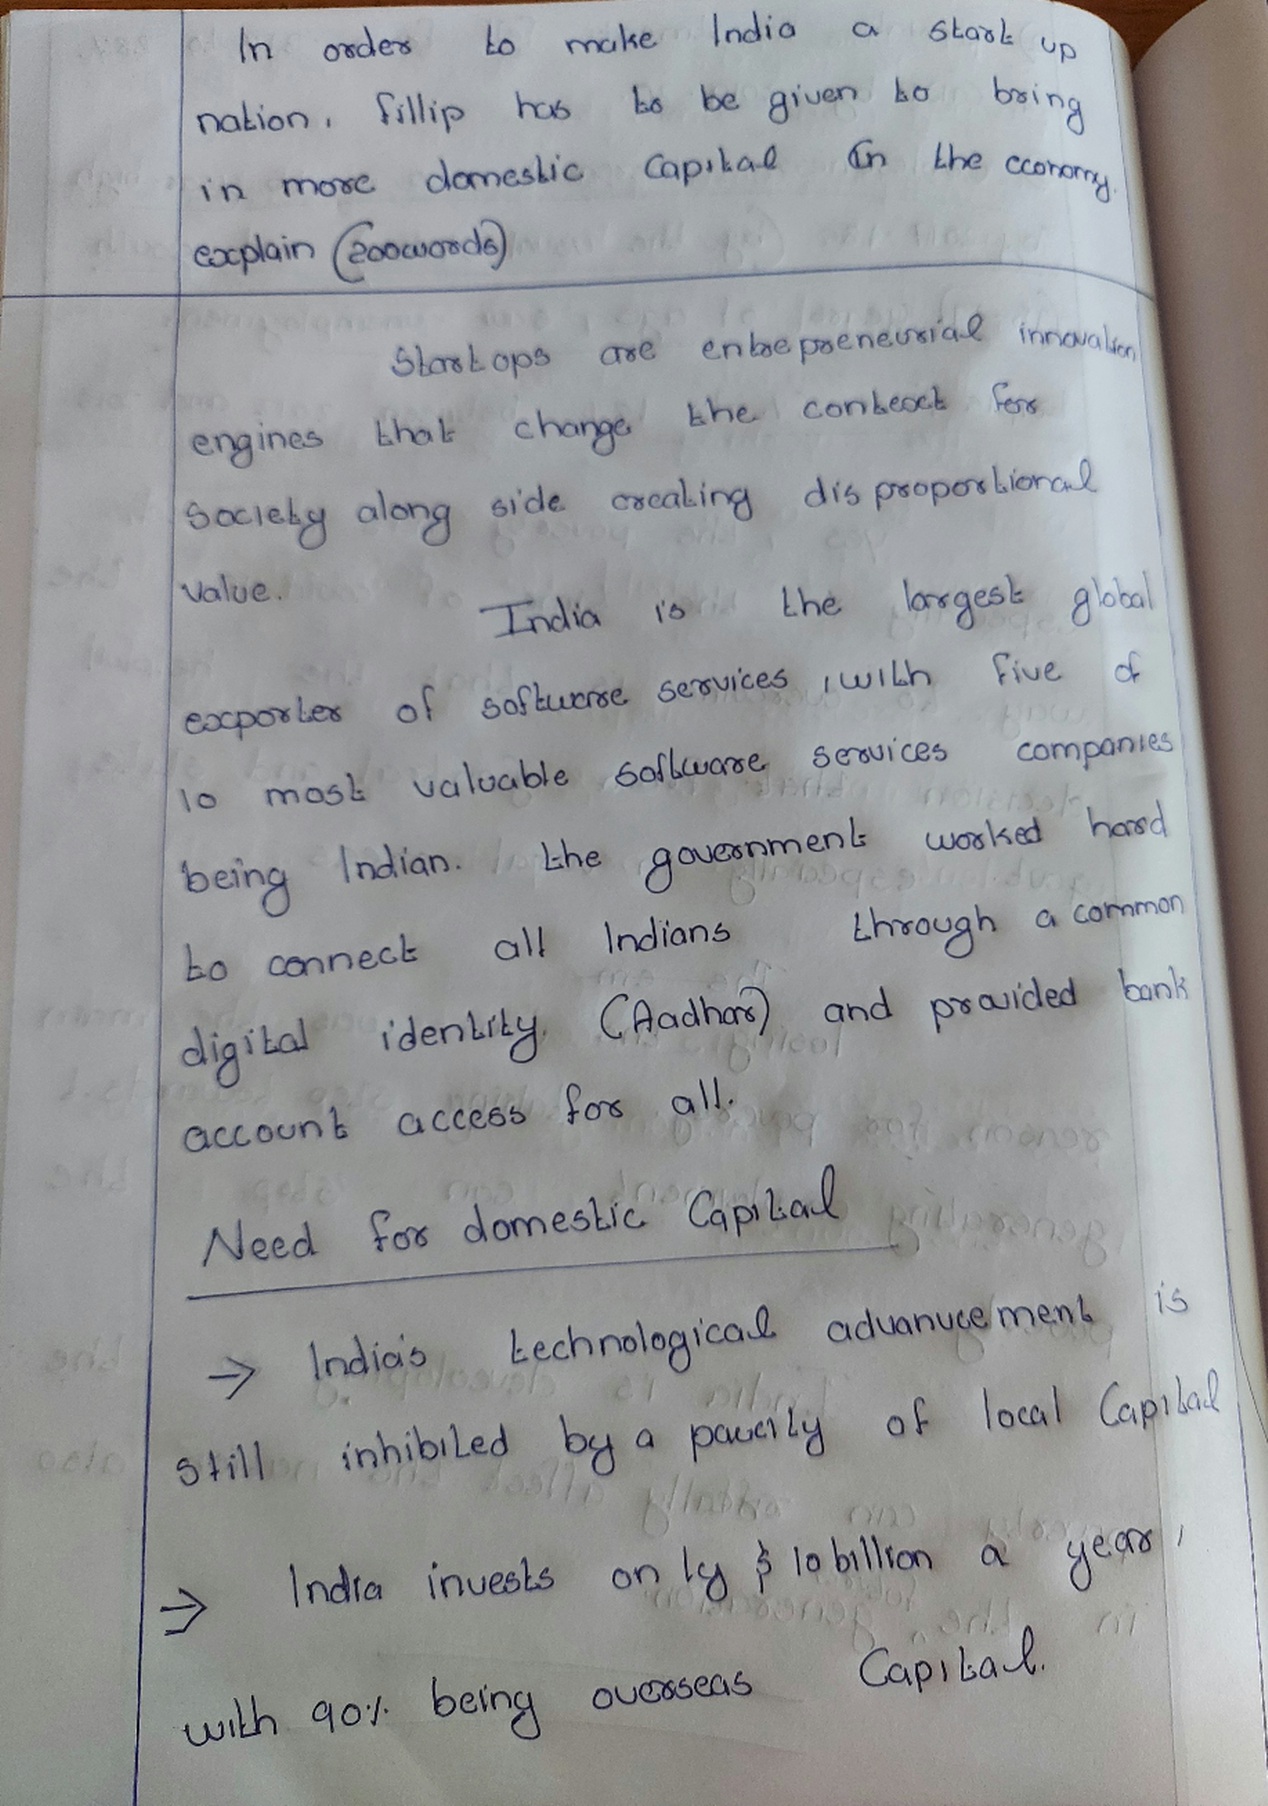 In order to make India a start up
nation, fillip has to be given to bring
in more domestic Capital in the economy.
explain (200words)
Startops are entrepreneurial innovation
engines that change the context for
society along side creating disproportional
value.
India is the largest global
exporter of software services, with five of
10 most valuable software services companies
being Indian. the government worked hard
to connect all Indians through a common
digital identity. (Aadhar) and provided bank
account access for all.
Need for domestic Capital
→ India's technological advanvcement is
still inhibited by a paucity of local Capital
→ India invests only $ 10 billion a year,
with 90% being overseas Capital.